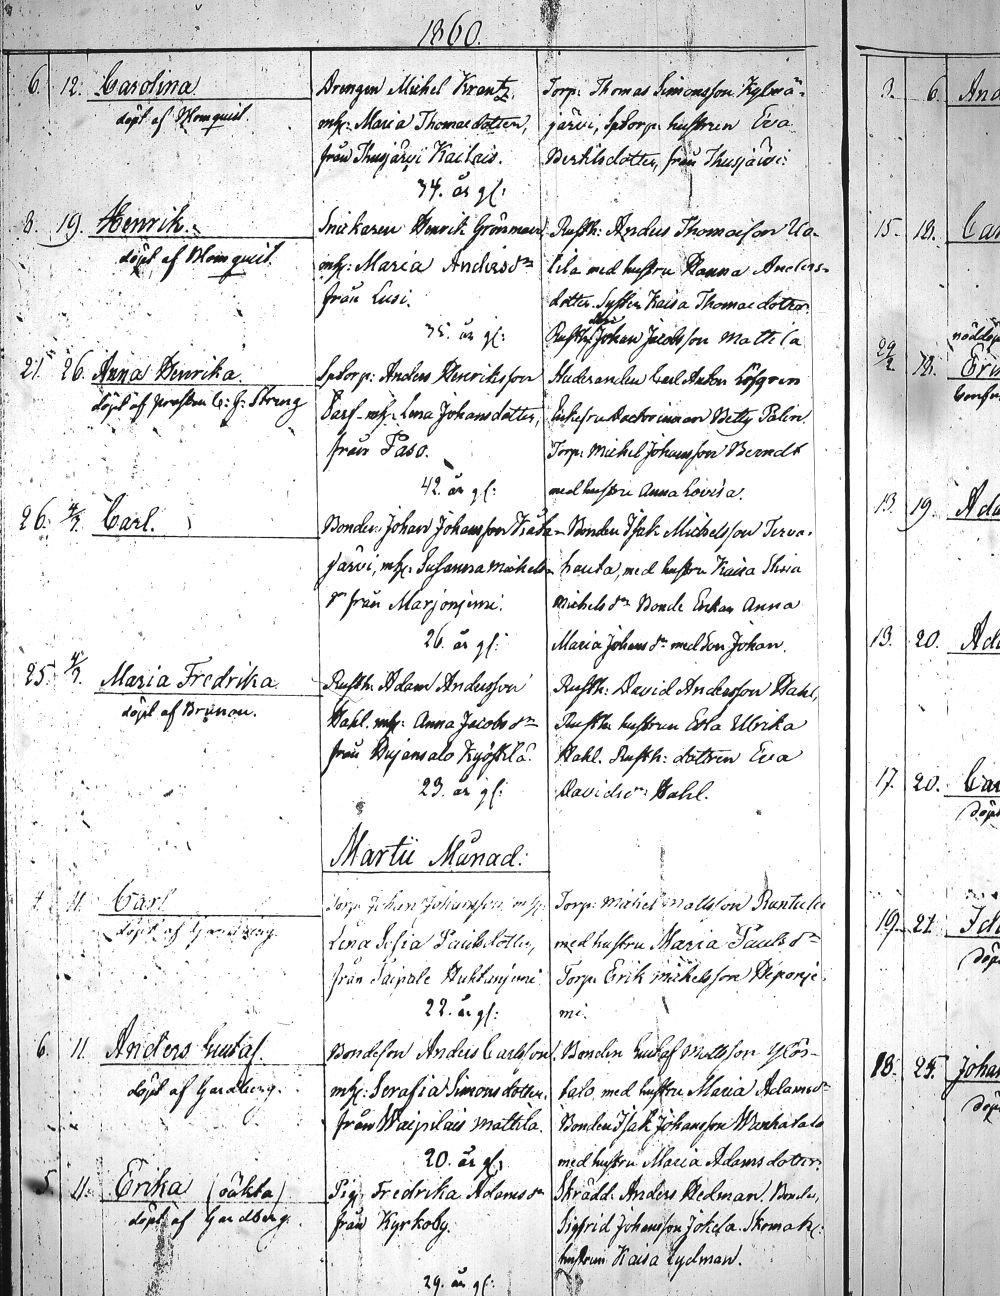 1860.
6. 12. Carolina
döpt af Blomquist.
Drengen Michel Krantz,
mh: Maria Thomaedotter,
från Thusjärvi Kailais.
34. år gl:
Torp: Thomas Simonsson Kylmä-
järvi, Sptorp: hustrun Eva
Bertilsdotter, från Thusjärvi:
8. 19. Henrik.
döpt af Blomquist.
Snickaren Henrik Grönman
mh: Maria Andersdr
från Lusi.
35. år gl:
Rusth: Anders Thomasson Ua-
tila med hustru Hanna Anders-
dotter. Syster Kaisa Thomaedotter.
Rusth: Johan Jacobsson Mattila
21. 26. Anna Henrika.
döpt af prosten C: G: Streng
Sptorp: Anders Henriksson
mh: Lena Johansdotter,
från Paso.
42. år gl:
Studeranden Carl Anton Löfgren
Enkefru Doctorinnan Betty Palin
Torp: Michel Johansson Berndt
med hustru Anna Lovisa.
26. 4/3. Carl.
Bonden Johan Johansson
järvi, mh: Susanna Michels-
dr från Marjoniemi.
26. år gl:
Bonden Isak Michelsson Terva-
hauta, med hustru Kaisa Stina
Michelsdr Bonde Enkan Anna
Maria Johansdr med Son Johan.
25. 4/3. Maria Fredrika
döpt af Brunou.
Rusth: Adam Andersson
Hahl. mh: Anna Jacobsdr
från Pujansalo Kyöstilä.
23. år gl:
Rusth: David Andersson Hahl,
Rusth: hustrun Eva Ulrika
Hahl. Rusth: dottren Eva
Davidsdr Hahl.
Martii Månad:
11. Carl
döpt af Gardberg.
Torp: Johan Johansson mh:
Lena Sofia Paulsdotter,
från Paipale Huhtaniemi
22. år gl:
Torp: Michel Mattsson Runtula
med hustru Maria Paulsdr
Torp: Erik Michelsson Heponie-
mi.
6. 11. Anders Gustaf.
döpt af Gardberg.
Bondeson Anders Carlsson
mh: Serafia Simonsdotter,
från Waipilais Mattila.
20. år gl:
Bonden Gustaf Mattsson Ylös-
talo, med hustru Maria Adamsdr
Bonden Isak Johansson Wanhatalo
med hustru Maria Adamsdotter.
5. 11. Erika (oäkta)
döpt af Gardberg.
Pig. Fredrika Adamsdr
från Kyrkoby.
29. år gl:
Skrädd. Anders Hedman. Bonden,
Sigfrid Johansson Jokela. Skomak:
hustrun Kaisa Lydman.
3. 6. And
15. 18. Car
29/2 18. Erik
13. 19. Ada
13. 20. Ada
17. 20. Car
döpt
19. 21. Ida
döpt
18. 25. Johan
döpt